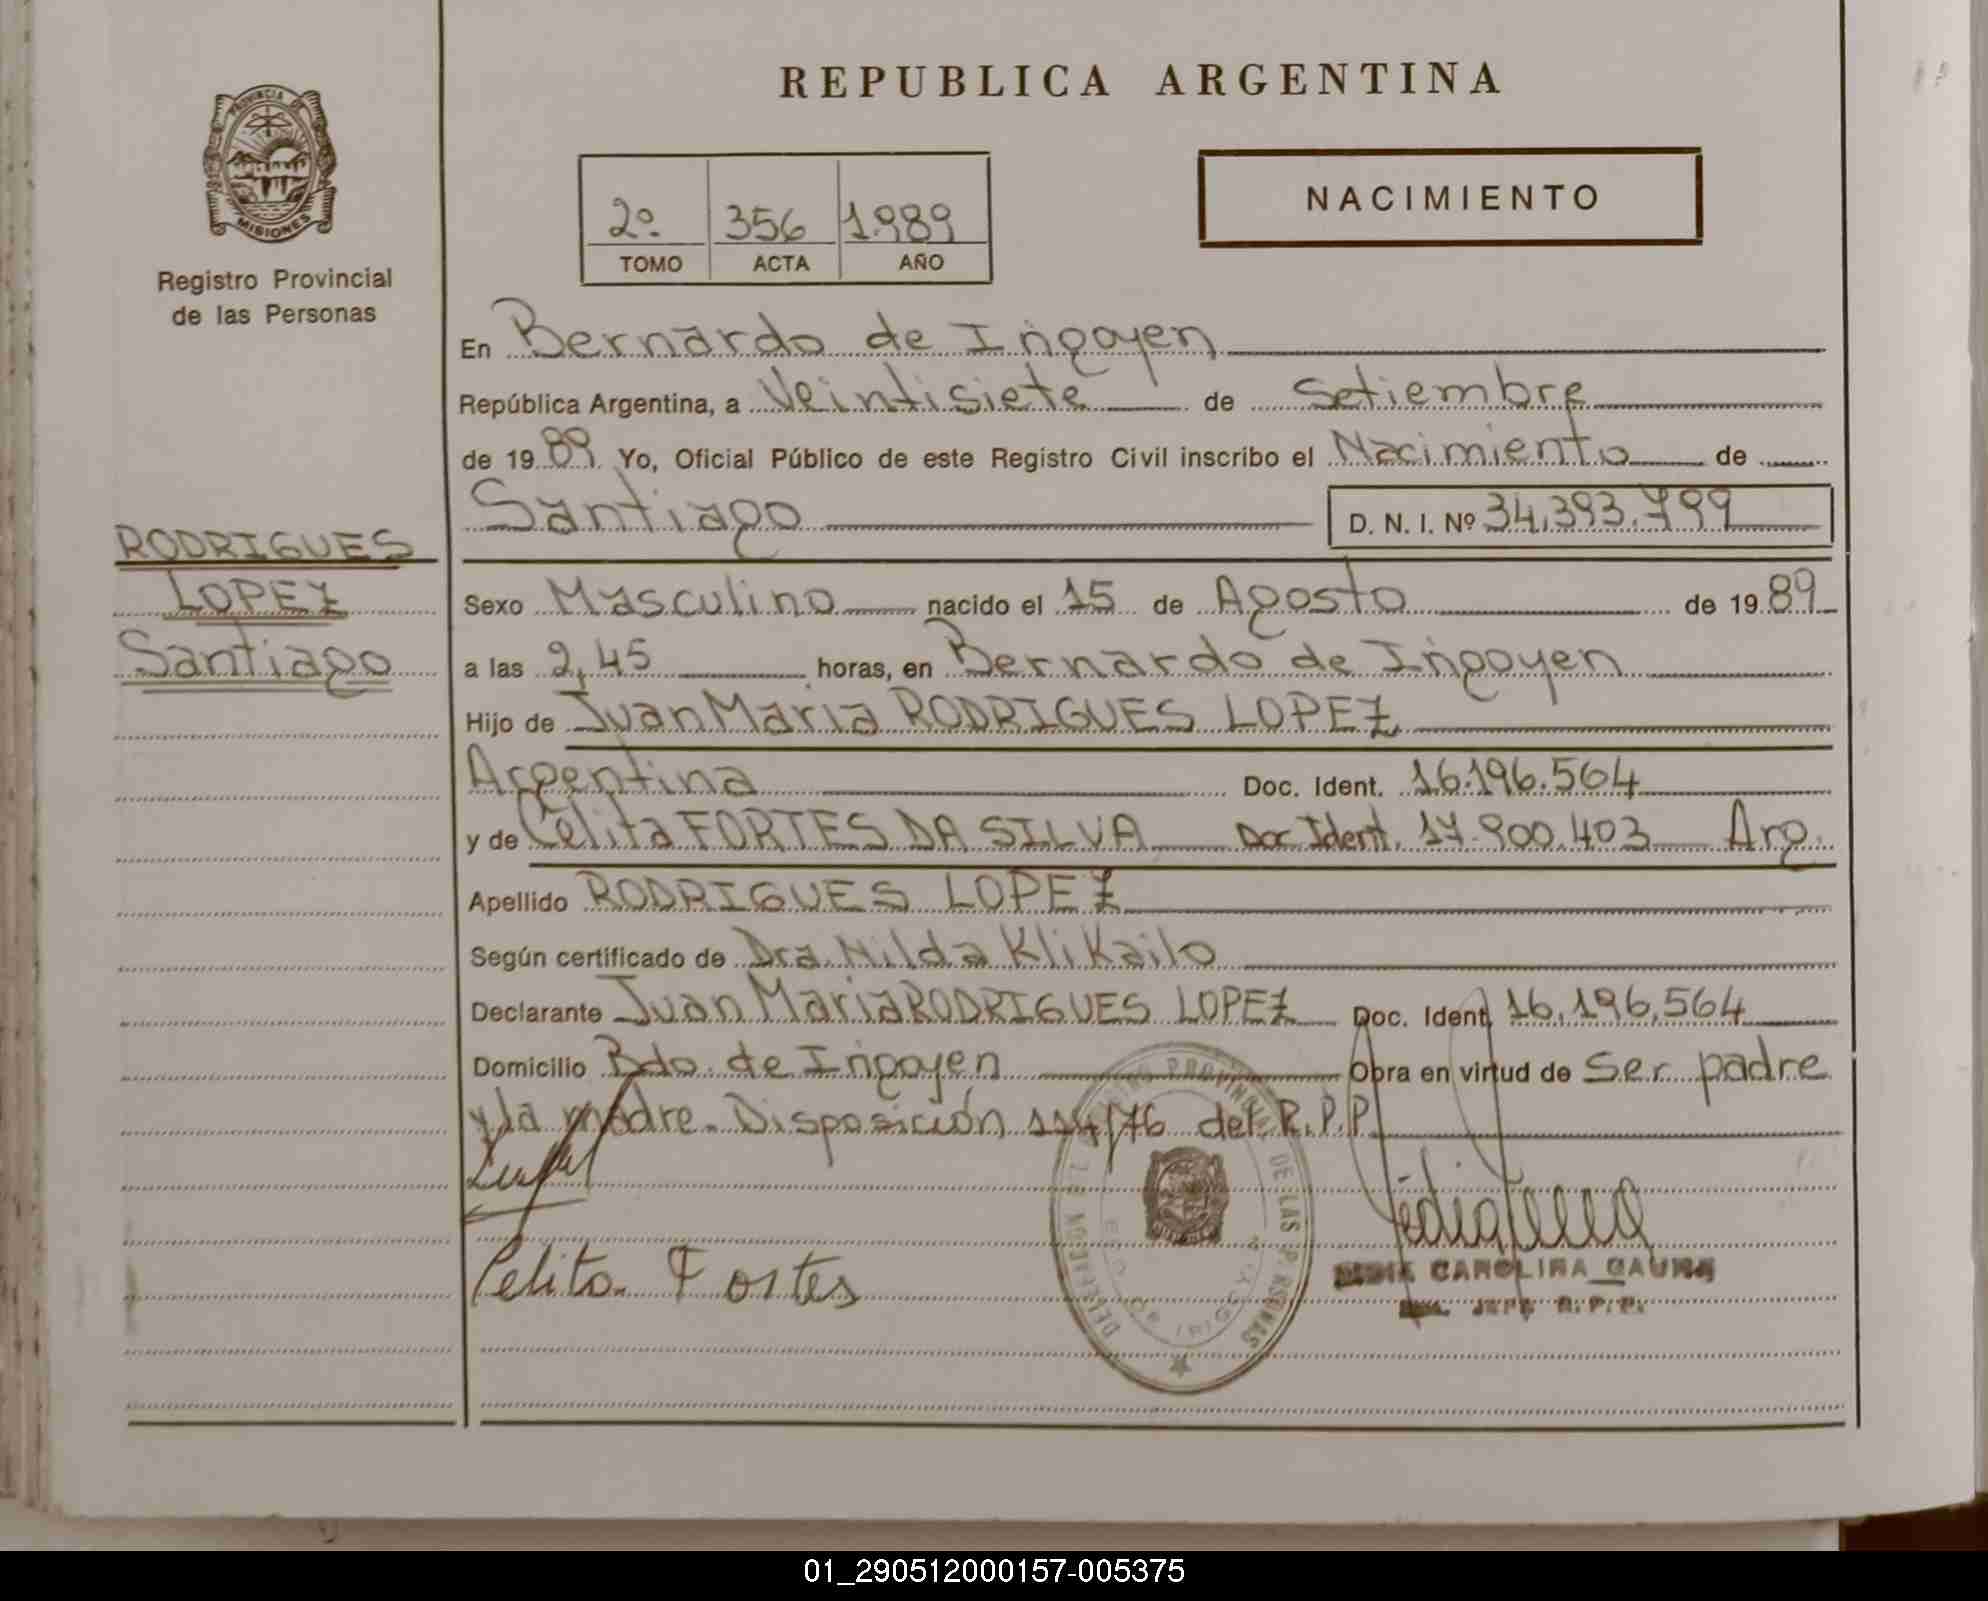 REPUBLICA ARGENTINA
PROVINCIA DE
MISIONES
Registro Provincial
de las Personas
NACIMIENTO
2º 356 1.989
TOMO ACTA AÑO
En Bernardo de Irigoyen
República Argentina, a Veintisiete de Setiembre
de 1989. Yo, Oficial Público de este Registro Civil inscribo el Nacimiento de
Santiago D. N. I. Nº 34.393.799
RODRIGUES
LOPEZ
Santiago
Sexo Masculino nacido el 15 de Agosto de 1989
a las 2,45 horas, en Bernardo de Irigoyen
Hijo de Juan Maria RODRIGUES LOPEZ
Argentina Doc. Ident. 16.196.564
y de Celita FORTES DA SILVA Doc Ident. 17.900.403 Arg.
Apellido RODRIGUES LOPEZ
Según certificado de Dra. Nilda Klikailo
Declarante Juan Maria RODRIGUES LOPEZ Doc. Ident. 16.196.564
Domicilio Bdo. de Irigoyen Obra en virtud de ser padre
y la madre. Disposición 114/76 del R.P.P.
Celita Fortes
CAROLINA GAUNA
JEFE R.P.P.
01_290512000157-005375